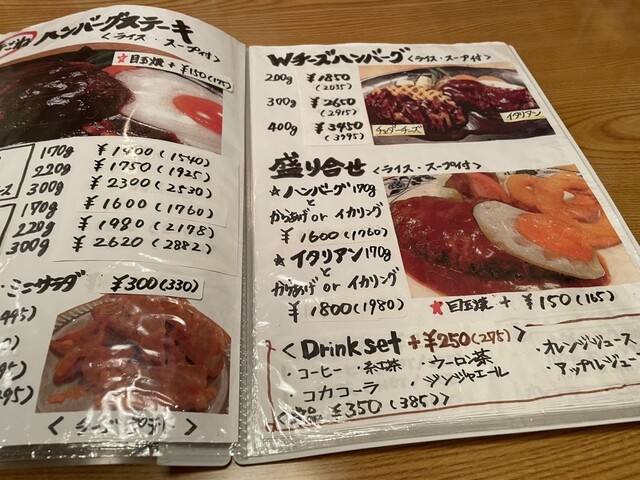 ハンバーグステーキ
＜ライス・スープ付＞
★目玉焼 + ¥150(175)
170g ¥1400(1540)
220g ¥1750(1925)
300g ¥2300(2530)
170g ¥1600(1760)
220g ¥1980(2178)
300g ¥2620(2882)
・ミニサラダ ¥300(330)
Wチーズハンバーグ＜ライス・スープ付＞
200g ¥1850
(2035)
300g ¥2650
(2915)
400g ¥3450
(3795)
チェダーチーズ
イタリアン
盛り合せ＜ライス・スープ付＞
★ハンバーグ170g
と
からあげ or イカリング
¥1600(1760)
★イタリアン170g
と
からあげ or イカリング
¥1800(1980)
★目玉焼 + ¥150(165)
＜Drink set +¥250(275)＞
・コーヒー ・紅茶 ・ウーロン茶 ・オレンジジュース
・コカコーラ ・ジンジャエール ・アップルジュー
¥350(385)